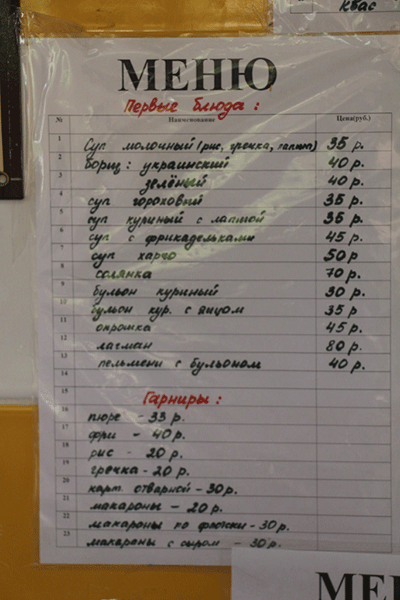 Квас
МЕНЮ
Первые блюда :
№ Наименование Цена(руб.)
1
2 Суп молочный (рис, гречка, лапша) 35 р.
3 борщ : украинский 40 р.
зелёный 40 р.
4 суп гороховый 35 р.
5 суп куриный с лапшой 35 р.
6 суп с фрикадельками 45 р.
7 суп харчо 50 р
8 солянка 70 р.
9 бульон куриный 30 р.
10 бульон кур. с яйцом 35 р
11 окрошка 45 р.
12 лагман 80 р.
13 пельмени с бульоном 40 р.
14
15
Гарниры :
16 пюре - 33 р.
17 фри - 40 р.
18 рис - 20 р.
19 гречка - 20 р.
20 карт. отварной - 30 р.
21 макароны - 20 р.
22 макароны по флотски - 30 р.
23 макароны с сыром - 30 р.
МЕ